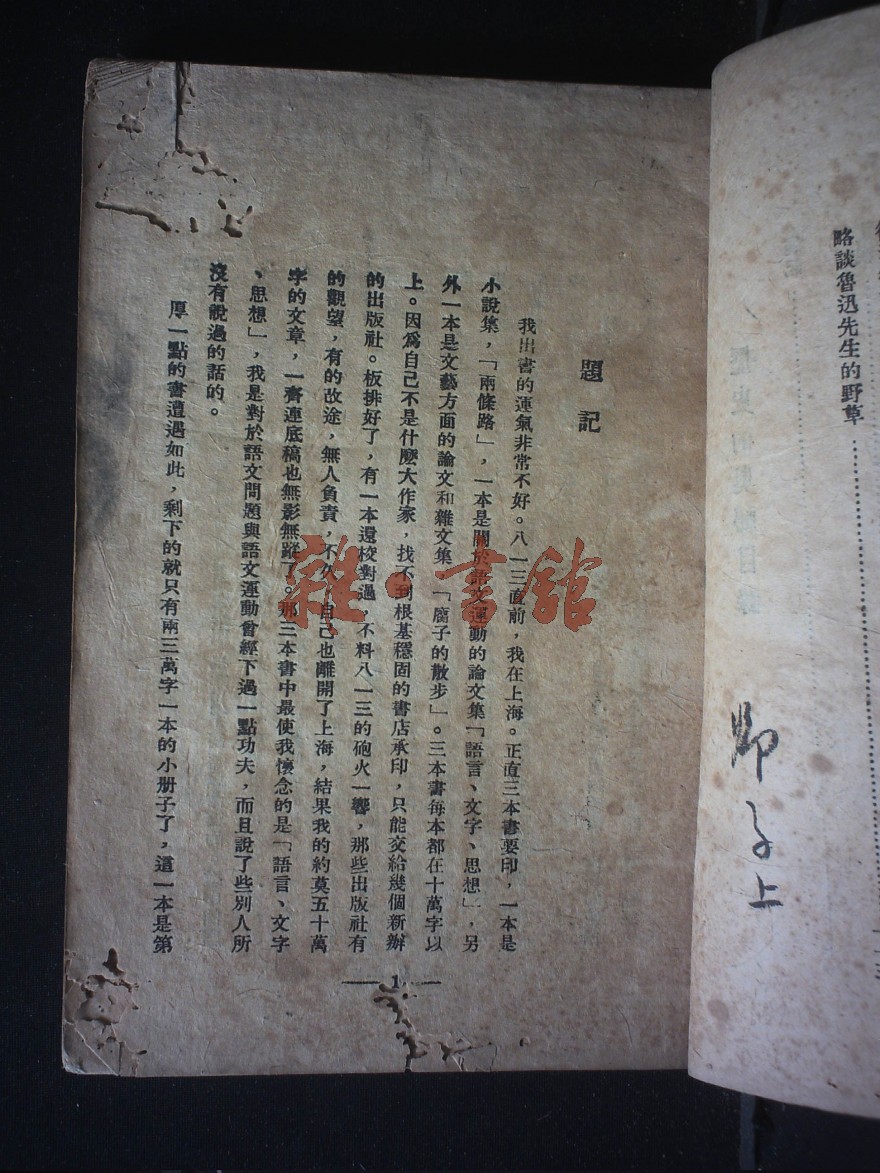 略談魯迅先生的野草
題記
我出書的運氣非常不好。八一三直前，我在上海。正直三本書要印，一本是
小說集，「兩條路」，一本是關於語文運動的論文集「語言、文字、思想」，另
外一本是文藝方面的論文和雜文集「腐子的散步」。三本書每本都在十萬字以
上。因爲自己不是什麽大作家，找不到根基穩固的書店承印，只能交給幾個新辦
的出版社。板排好了，有一本還校對過，不料八一三的砲火一響，那些出版社有
的觀望，有的改途，無人負責，不久，自己也離開了上海，結果我的約莫五十萬
字的文章，一齊連底稿也無影無蹤了。那三本書中最使我懷念的是「語言、文字
、思想」，我是對於語文問題與語文運動曾經下過一點功夫，而且說了些別人所
沒有說過的話的。
厚一點的書遭遇如此，剩下的就只有兩三萬字一本的小册子了，這一本是第
1
雜·書館